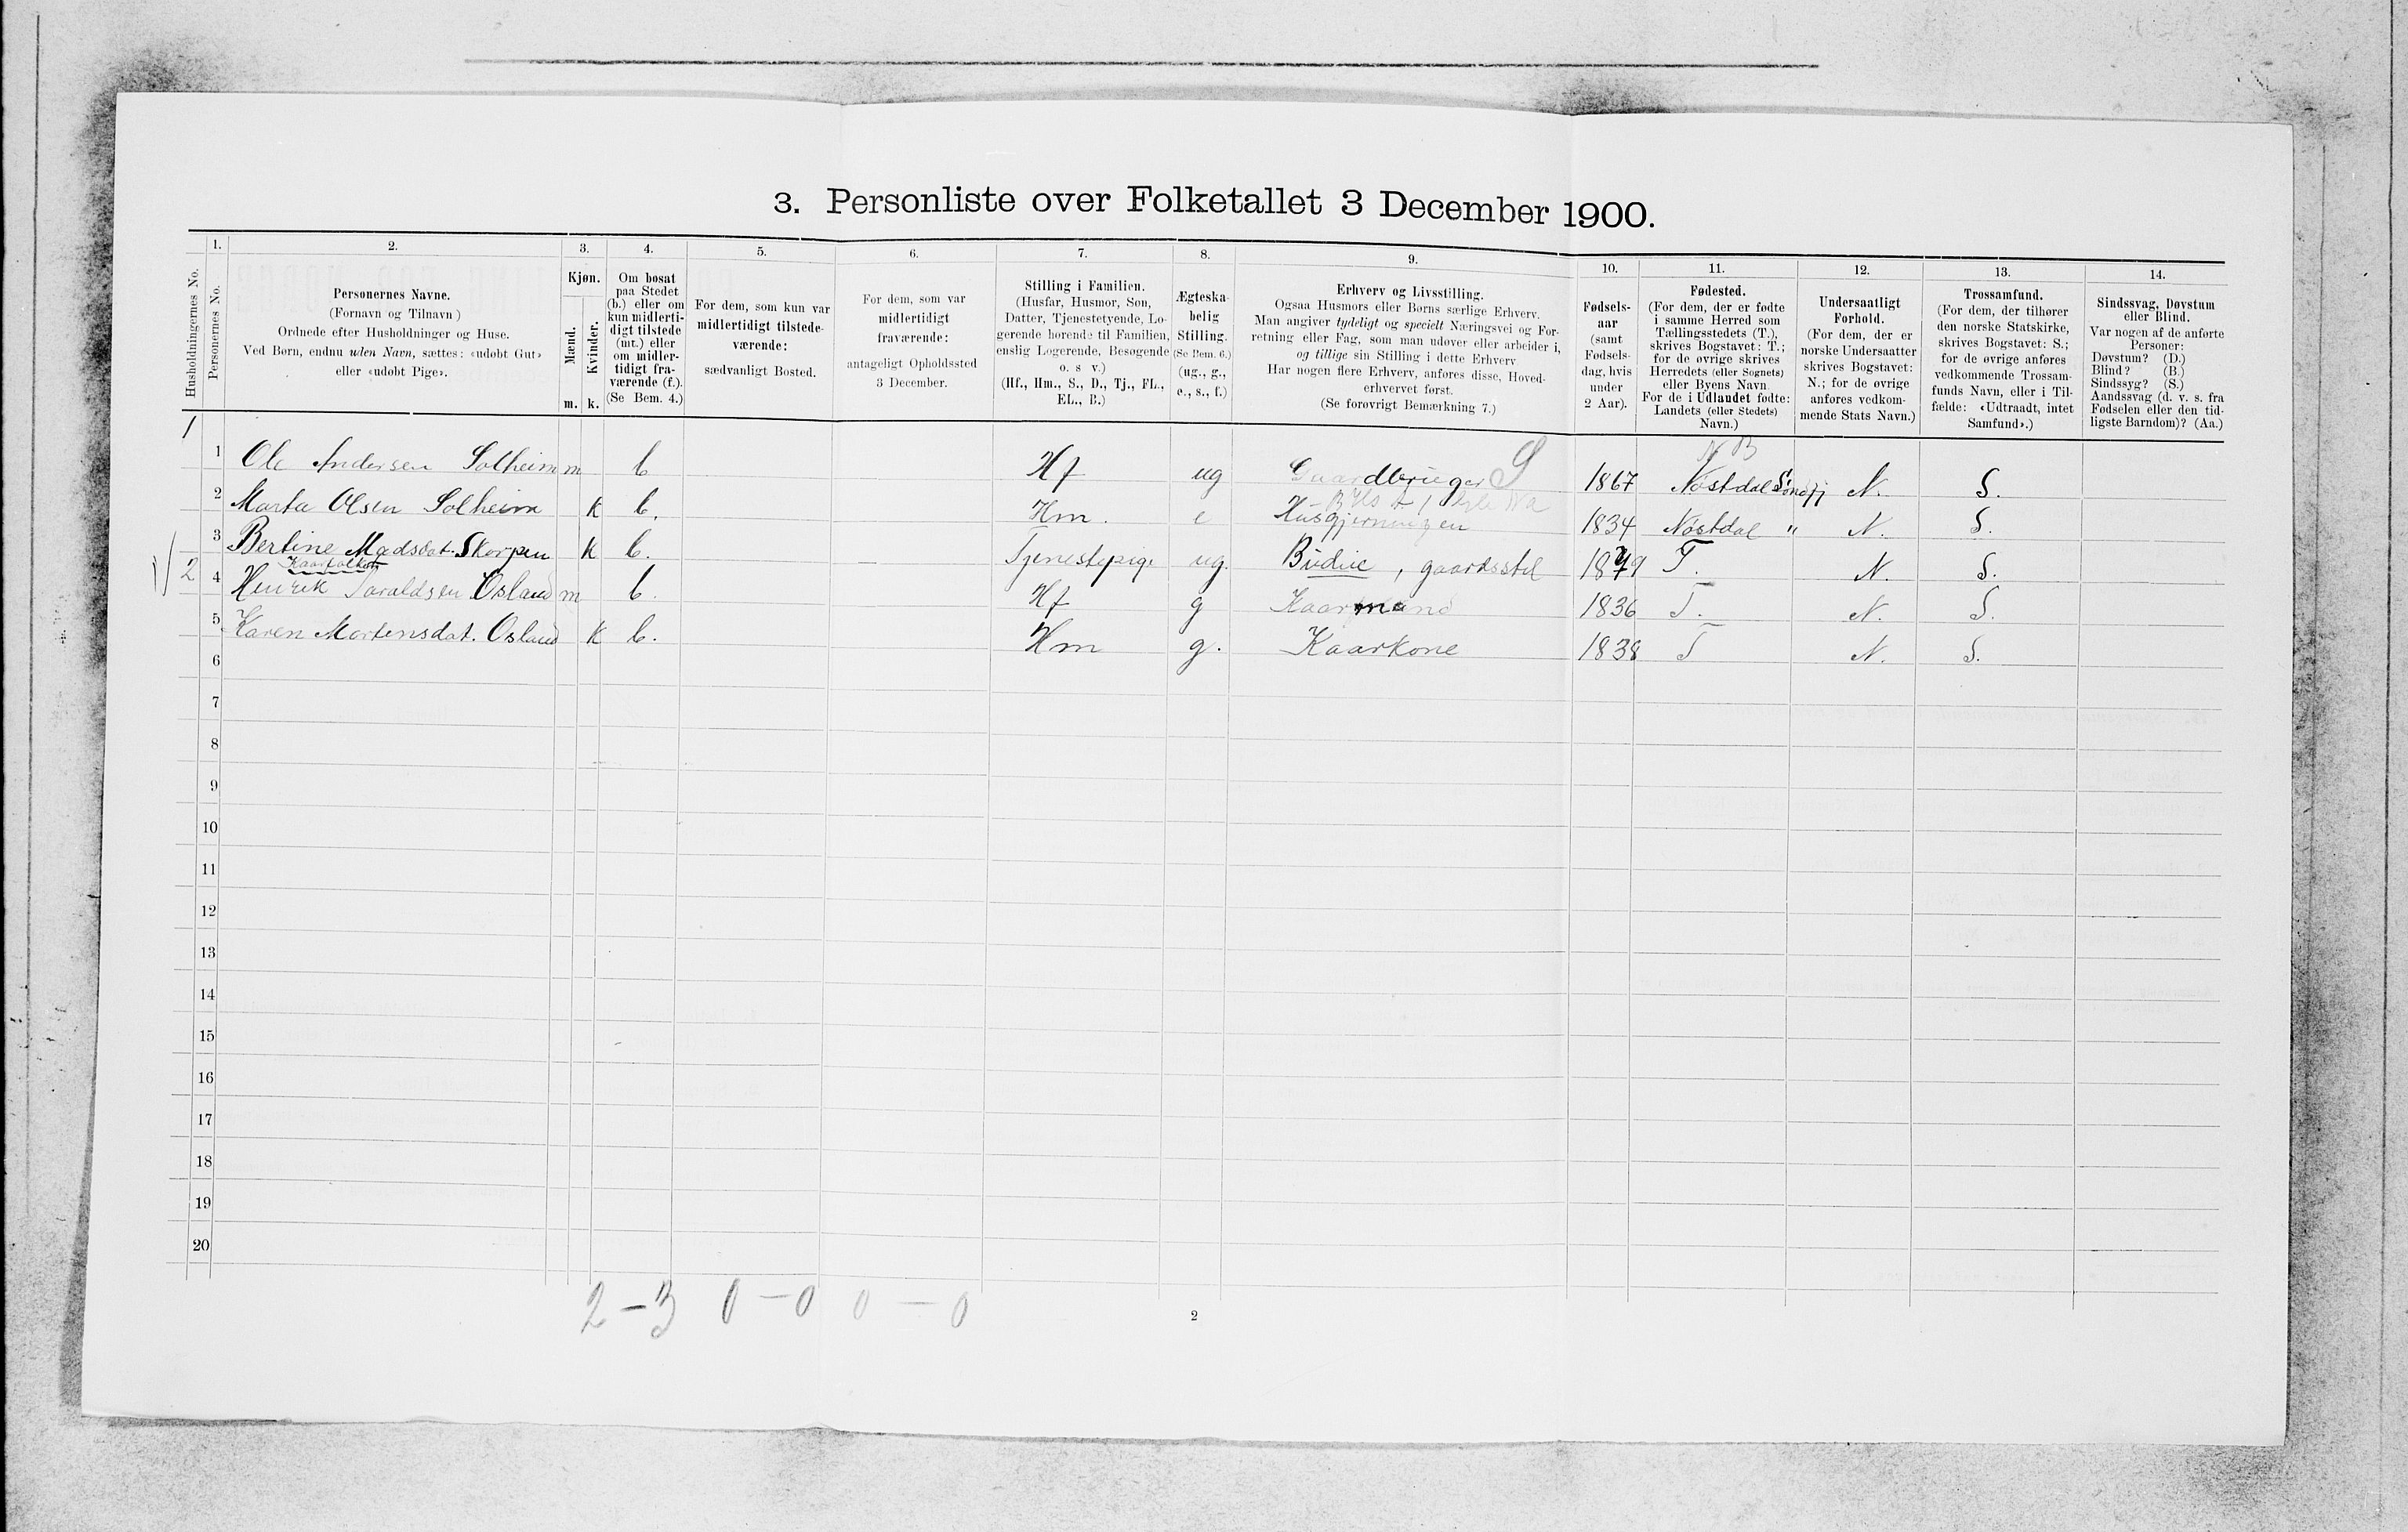 3. Personliste over Folketallet 3 December 1900.
Husholdningernes No.
1.
Personernes No.
2.
Personernes Navne.
(Fornavn og Tilnavn)
Ordnede efter Husholdninger og Huse.
Ved Børn, endnu uden Navn, sættes: «udøbt Gut»
eller «udøbt Pige».
3.
Kjøn.
Mænd.
Kvinder.
m. k.
4.
Om bosat
paa Stedet
(b.) eller om
kun midlerti-
digt tilstede
(mt.) eller
om midler-
tidigt fra-
værende (f.).
(Se Bem. 4.)
5.
For dem, som kun var
midlertidigt tilstede-
værende:
sædvanligt Bosted.
6.
For dem, som var
midlertidigt
fraværende:
antageligt Opholdssted
3 December.
7.
Stilling i Familien.
(Husfar, Husmor, Søn,
Datter, Tjenestetyende, Lo-
gerende hørende til Familien,
enslig Logerende, Besøgende
o. s v.)
(Hf., Hm., S., D., Tj., FL.,
EL., B.)
8.
Ægteska-
belig
Stilling.
(Se Bem. 6.)
(ug., g.,
e., s., f.)
9.
Erhverv og Livsstilling.
Ogsaa Husmors eller Børns særlige Erhverv.
Man angiver tydeligt og specielt Næringsvei og For-
retning eller Fag, som man udøver eller arbeider i,
og tillige sin Stilling i dette Erhverv
Har nogen flere Erhverv, anføres disse, Hoved-
erhvervet først.
(Se forøvrigt Bemærkning 7.)
10.
Fødsels-
aar
(samt
Fødsels-
dag, hvis
under
2 Aar).
11.
Fødested.
(For dem, der er fødte
i samme Herred som
Tællingsstedets (T.),
skrives Bogstavet: T.;
for de øvrige skrives
Herredets (eller Sognets)
eller Byens Navn.
For de i Udlandet fødte:
Landets (eller Stedets)
Navn.)
12.
Undersaatligt
Forhold.
(For dem, der er
norske Undersaatter
skrives Bogstavet:
N.; for de øvrige
anføres vedkom-
mende Stats Navn.)
13.
Trossamfund.
(For dem, der tilhører
den norske Statskirke,
skrives Bogstavet: S.;
for de øvrige anføres
vedkommende Trossam-
funds Navn, eller i Til-
fælde: «Udtraadt, intet
Samfund».)
14.
Sindssvag, Døvstum
eller Blind.
Var nogen af de anførte
Personer:
Døvstum? (D.)
Blind? (B.)
Sindssyg? (S.)
Aandssvag (d. v. s. fra
Fødselen eller den tid-
ligste Barndom)? (Aa.)
1
N B
1 Ole Andersen Solheim m b Hf ug Gaardbruger S 1867 Nøstdal Søndfj N. S.
2 Marta Olsen Solheim k b. Hm. e Husgjerningen 1834 Nøstdal " N. S.
3 Bertine Madsdat. Skorpen k b. Tjenestepige ug. Budeie, gaardsstel 1879 T. N. S.
Kaarfolket
2 4 Henrik Taraldsen Osland m b. Hf g Kaarmand 1836 T. N. S.
5 Karen Mortensdat. Osland k b. Hm g. Kaarkone 1838 T N. S.
6
7
8
9
10
11
12
13
14
15
16
17
18
19
20
2 – 3 0 – 0 0 – 0
2